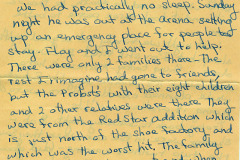 We had practically no sleep. Sunday
night he was out at the arena setting
up an emergency place for people to
stay. Flay and I went out to help.
There were only 2 families there - The
rest I imagine, had gone to friends,
but the Probsts with their eight children
and 2 other relatives were there. They
were from the Red Star addition which
is just north of the shoe factory and
which was the worst hit. The family